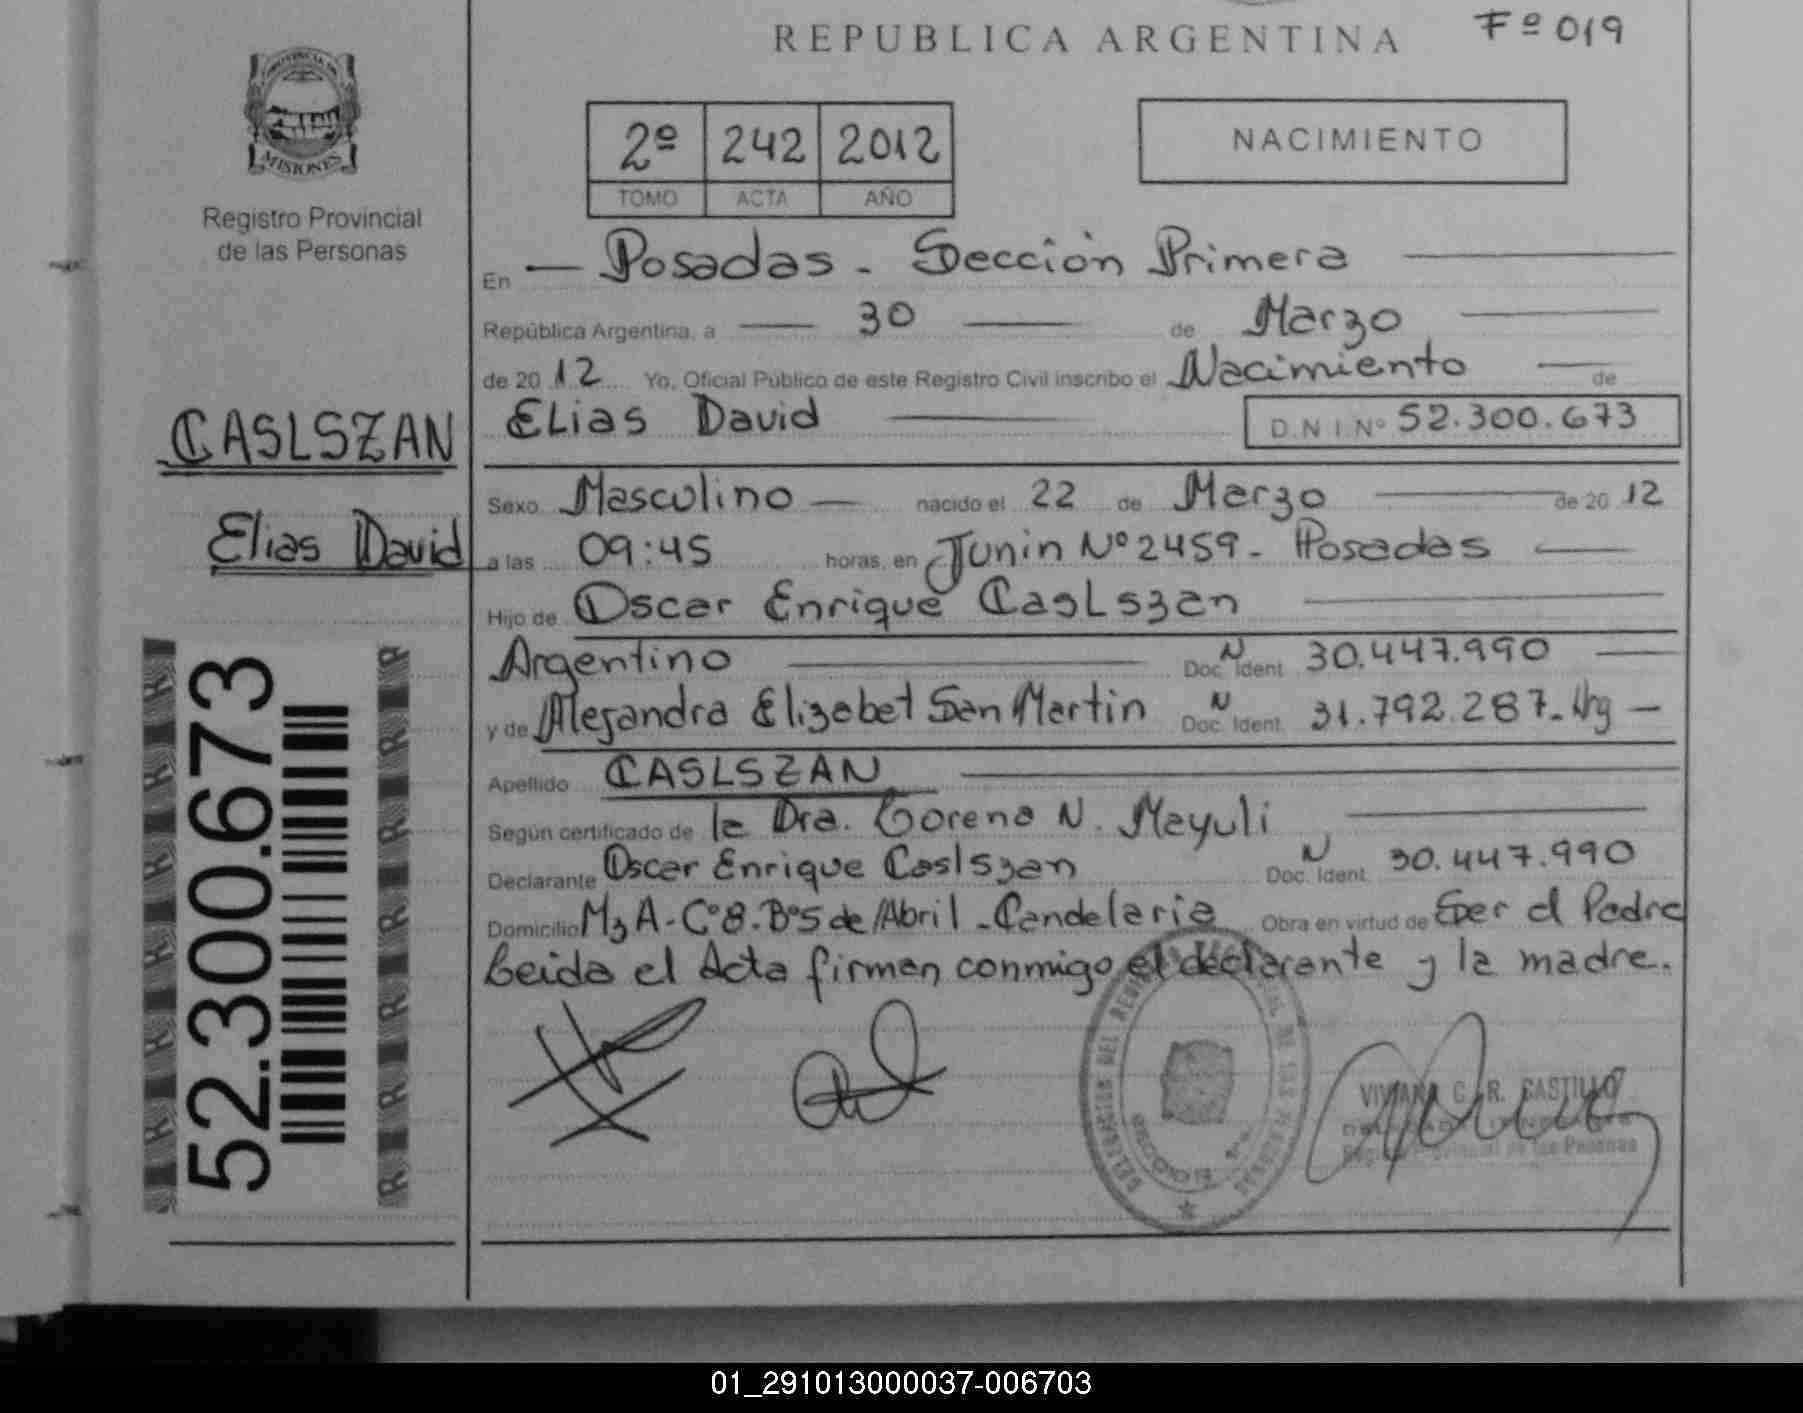 REPUBLICA ARGENTINA
Fº 019
MISIONES
Registro Provincial
de las Personas
2º 242 2012
TOMO ACTA AÑO
NACIMIENTO
En Posadas - Sección Primera
República Argentina, a 30 de Marzo
de 20 12 Yo, Oficial Público de este Registro Civil inscribo el Nacimiento de
Elias David D.N.I Nº 52.300.673
CASLSZAN
Elias David
Sexo Masculino nacido el 22 de Marzo de 20 12
a las 09:45 horas, en Junin Nº 2459 - Posadas
Hijo de Oscar Enrique Caslszan
Argentino Doc. Ident. N 30.447.990
y de Alejandra Elizabet San Martin Doc. Ident. N 31.792.287 - Arg
Apellido CASLSZAN
Según certificado de la Dra. Lorena N. Mayuli
Declarante Oscar Enrique Caslszan Doc. Ident. N 30.447.990
Domicilio Mz A - Cº 8 - Bº 5 de Abril - Candelaria Obra en virtud de Ser el Padre
Leida el Acta firman conmigo el declarante y la madre.
52.300.673
R R R R R R
VIVIANA C. R. CASTILLO
Registro Provincial de las Personas
01_291013000037-006703